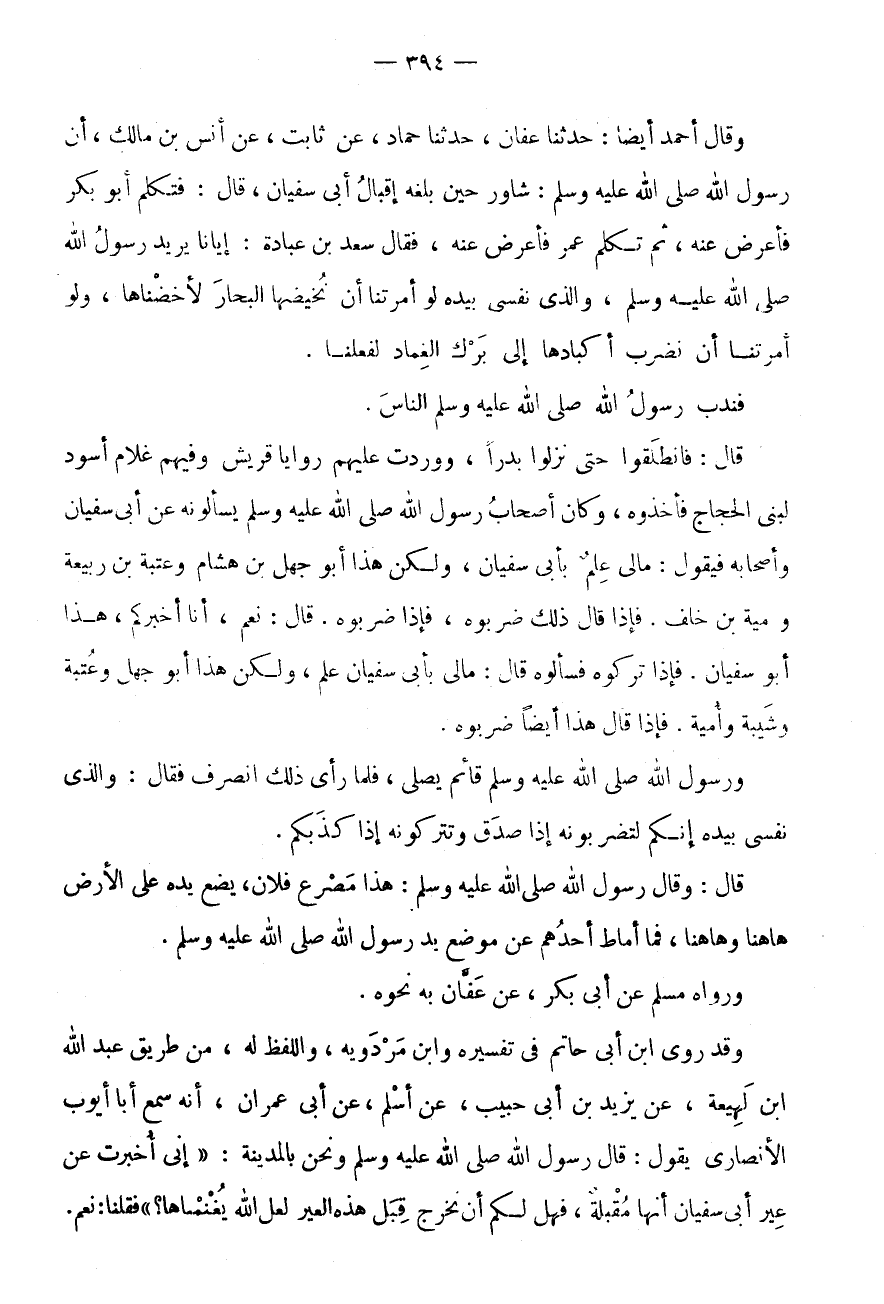 — ٣٩٤ —
وقال أحمد أيضا : حدثنا عفان ، حدثنا حماد ، عن ثابت ، عن أنس بن مالك ، أن
رسول الله صلى الله عليه وسلم : شاور حين بلغه إقبالُ أبى سفيان ، قال : فتكلم أبو بكر
فأعرض عنه ، ثم تكلم عمر فأعرض عنه ، فقال سعد بن عبادة : إيانا يريد رسولُ الله
صلى الله عليه وسلم ، والذى نفسى بيده لو أمرتنا أن نُخيضها البحارَ لأخضْناها ، ولو
أمرتنا أن نضرب أكبادها إلى بَرْك الغِماد لفعلنا .
فندب رسولُ الله صلى الله عليه وسلم الناسَ .
قال : فانطلَقوا حتى نزلوا بدراً ، ووردت عليهم روايا قريش وفيهم غلام أسود
لبنى الحجاج فأخذوه ، وكان أصحابُ رسول الله صلى الله عليه وسلم يسألونه عن أبى سفيان
وأصحابه فيقول : مالى عِلمٌ بأبى سفيان ، ولكن هذا أبو جهل بن هشام وعتبة بن ربيعة
و مية بن خلف . فإذا قال ذلك ضربوه ، فإذا ضربوه . قال : نعم ، أنا أخبركم ، هذا
أبو سفيان . فإذا تركوه فسألوه قال : مالى بأبى سفيان علم ، ولكن هذا أبو جهل وعُتبة
وشَيبة وأُمية . فإذا قال هذا أيضاً ضربوه .
ورسول الله صلى الله عليه وسلم قائم يصلى ، فلما رأى ذلك انصرف فقال : والذى
نفسى بيده إنكم لتضربونه إذا صدَق وتتركونه إذا كذَبكم .
قال : وقال رسول الله صلى الله عليه وسلم : هذا مَصْرع فلان، يضع يده على الأرض
هاهنا وهاهنا ، فما أماط أحدُهم عن موضع يد رسول الله صلى الله عليه وسلم .
ورواه مسلم عن أبى بكر ، عن عَفَّان به نحوه .
وقد روى ابن أبى حاتم فى تفسيره وابن مَرْدَويه ، واللفظ له ، من طريق عبد الله
ابن لَهِيعة ، عن يزيد بن أبى حبيب ، عن أسْلم ، عن أبى عمران ، أنه سمع أبا أيوب
الأنصارى يقول : قال رسول الله صلى الله عليه وسلم ونحن بالمدينة : « إنى أُخبرت عن
عِير أبى سفيان أنها مُقْبلةٌ ، فهل لكم أن نخرج قِبَل هذه العير لعل الله يُغْنْماها؟» فقلنا: نعم.